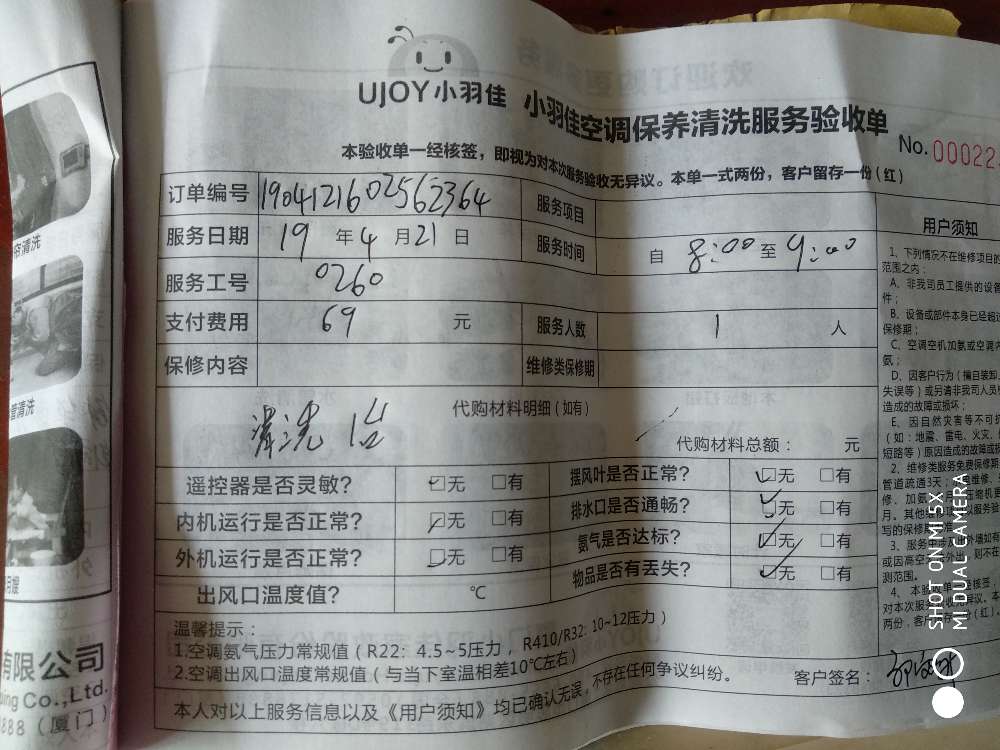 UJOY小羽佳 小羽佳空调保养清洗服务验收单
No. 00022
本验收单一经核签，即视为对本次服务验收无异议。本单一式两份，客户留存一份(红)
订单编号 1904121602562364 服务项目
服务日期 19 年 4 月 21 日 服务时间 自 8:00 至 9:00
服务工号 0260
支付费用 69 元 服务人数 1 人
保修内容 维修类保修期
代购材料明细(如有)
清洗 1台
代购材料总额： 元
遥控器是否灵敏? 无 有 摆风叶是否正常? 无 有
内机运行是否正常? 无 有 排水口是否通畅? 无 有
外机运行是否正常? 无 有 氨气是否达标? 无 有
出风口温度值? ℃ 物品是否有丢失? 无 有
温馨提示：
1.空调氨气压力常规值(R22: 4.5~5压力，R410/R32: 10~12压力)
2.空调出风口温度常规值(与当下室温相差10℃左右)
本人对以上服务信息以及《用户须知》均已确认无误，不存在任何争议纠纷。
客户签名：
用户须知
1、下列情况不在维修项目的
范围之内：
A、非我司员工提供的设备
件；
B、设备或部件本身已经超过
保修期；
C、空调空机加氨或空调内
氨；
D、因客户行为(擅自装卸、
失误等)或另请非我司人员
造成的故障或损坏；
E、因自然灾害等不可抗
(如：地震、雷电、火灾、
短路等)原因造成的故障或
2、维修类服务免费保修期
管道疏通3天；
修、加氨
月。其他
写的保修期
3、服务
或因高空
测范围。
4、本
对本次服务
两份，客户
帘清洗
管清洗
月嫂
有限公司
ping Co.,Ltd.
888（厦门）
SHOT ON MI 5X
MI DUAL CAMERA